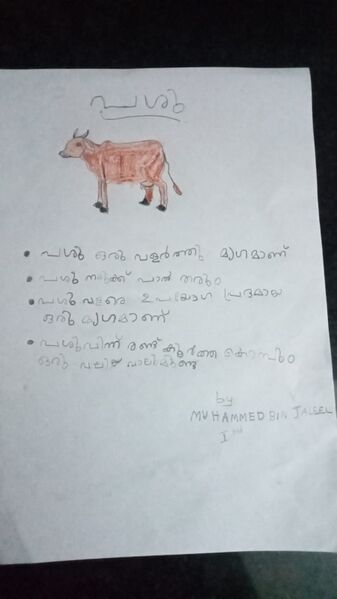 പശു
• പശു ഒരു വളർത്തു മൃഗമാണ്
• പശു നമുക്ക് പാൽ തരും
• പശു വളരെ ഉപയോഗ പ്രദമായ
ഒരു മൃഗമാണ്
• പശുവിന് രണ്ട് കൂർത്ത കൊമ്പും
ഒരു വാലുമുണ്ട്
by
MUHAMMED BIN JALEEL
I